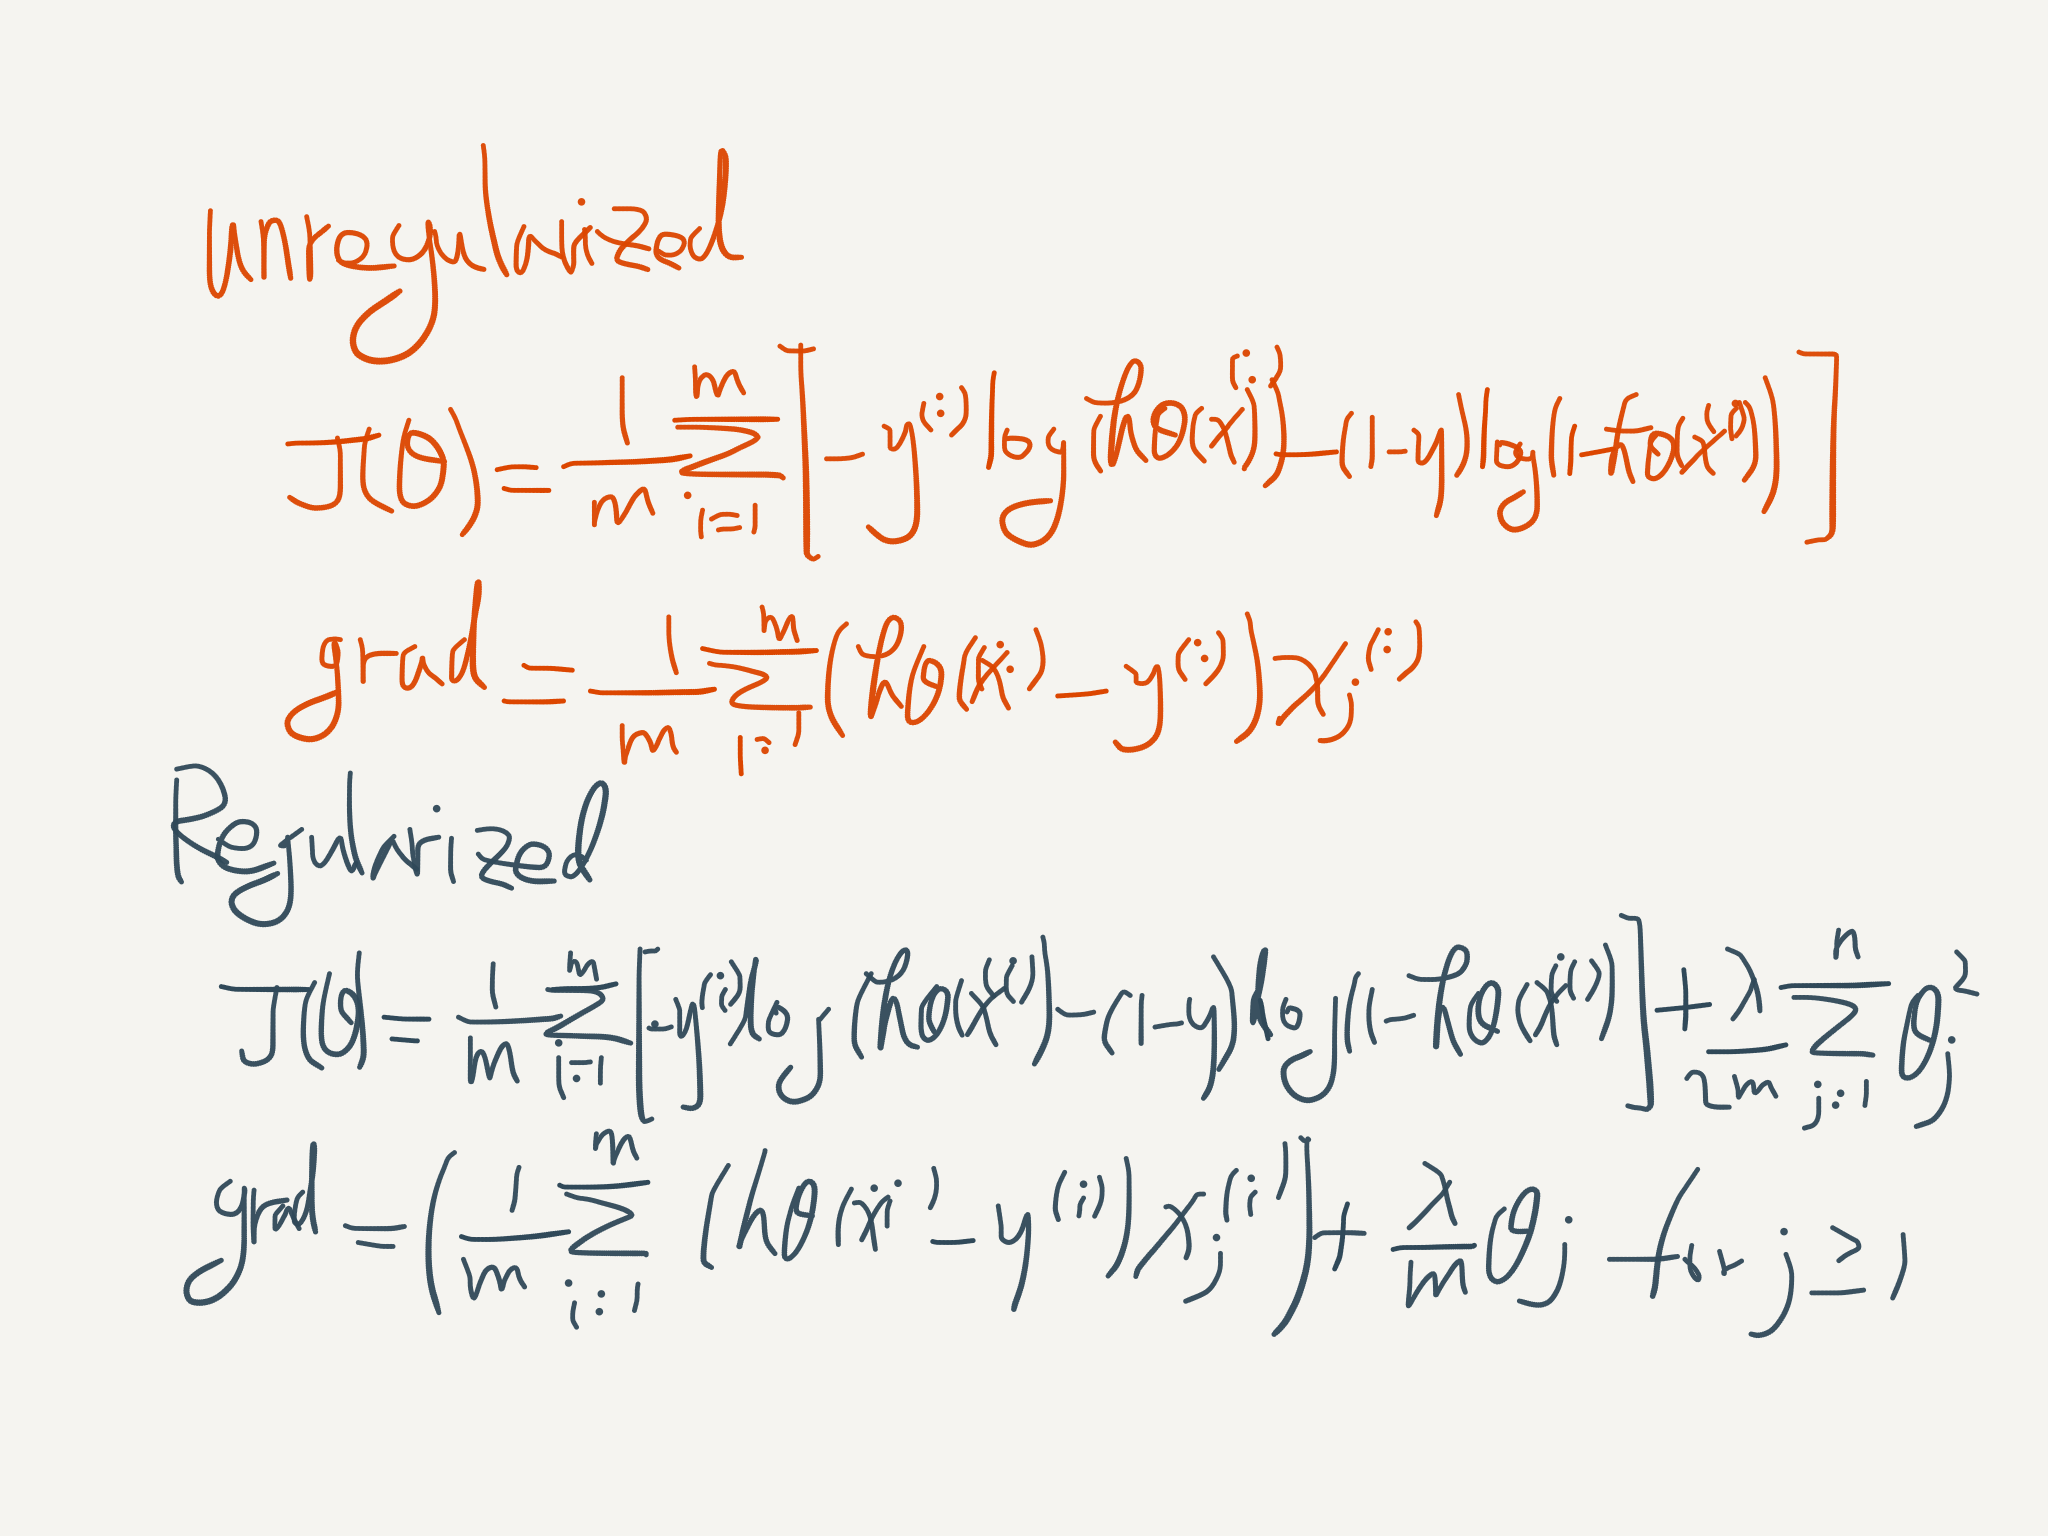 unregularized
J(θ) = 1/m Σ_{i=1}^{m} [-y^{(i)} log(hθ(x^{(i)})) - (1-y) log(1-hθ(x^{(i)}))]
grad = 1/m Σ_{i=1}^{m} (hθ(x^{i}) - y^{(i)}) x_j^{(i)}
Regularized
J(θ) = 1/m Σ_{i=1}^{m} [-y^{(i)} log(hθ(x^{(i)}) - (1-y) log(1-hθ(x^{(i)})] + λ/2m Σ_{j=1}^{n} θ_j^2
grad = (1/m Σ_{i=1}^{m} (hθ(x^{i}) - y^{(i)}) x_j^{(i)}) + λ/m θ_j for j ≥ 1